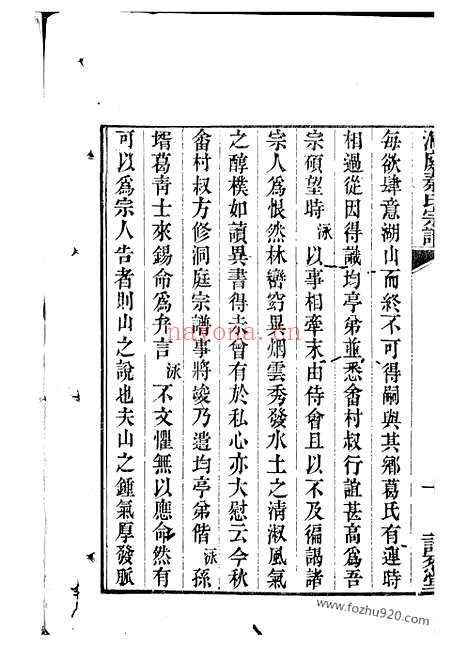 洞庭秦氏宗譜
一
每欲肆意湖山而終不可得嗣與其鄉葛氏有連時
相過從因得識均亭弟並悉畬村叔行誼甚高爲吾
宗碩望時泳以事相牽未由侍會且以不及徧謁諸
宗人爲恨然林巒窈異烟雲秀發水土之清淑風氣
之醇樸如讀異書得未曾有於私心亦大慰云今秋
畬村叔方修洞庭宗譜事將竣乃遣均亭弟偕泳孫
壻葛靑士來錫命爲弁言泳不文懼無以應命然有
可以爲宗人告者則山之說也夫山之鍾氣厚發脈
nayona.cn
www.fozhu920.com